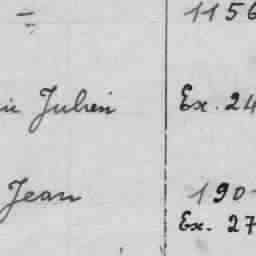 = 1156
Julien Ex. 24
Jean 190
Ex. 27